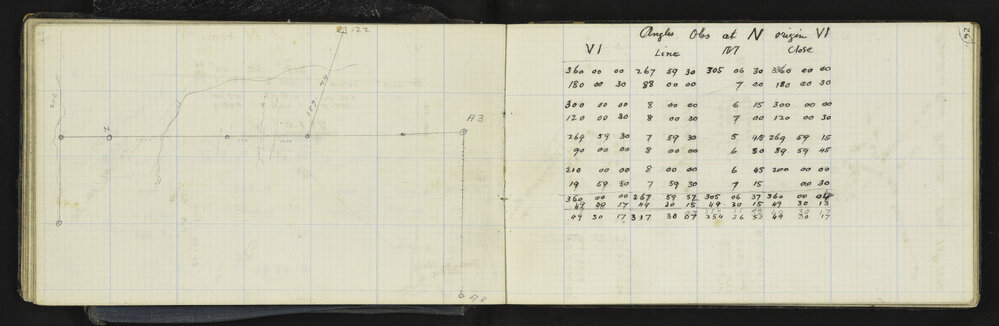 122
206
N
A3
A2
(92)
Angles Obs at N origin VI
VI Line Close
360 00 00 267 59 30 305 06 30 360 00 00
180 00 30 88 00 00 7 00 180 00 30
300 00 00 8 00 00 6 15 300 00 00
120 00 30 8 00 30 7 00 120 00 30
269 59 30 7 59 30 5 45 269 59 15
90 00 00 8 00 00 6 30 89 59 45
210 00 00 8 00 00 6 45 200 00 00
19 59 30 7 59 30 7 15 00 30
360 00 00 267 59 57 305 06 37 360 00 04
49 30 17 49 30 15 49 30 15 49 30 13
49 30 17 317 30 07 354 36 52 49 30 17